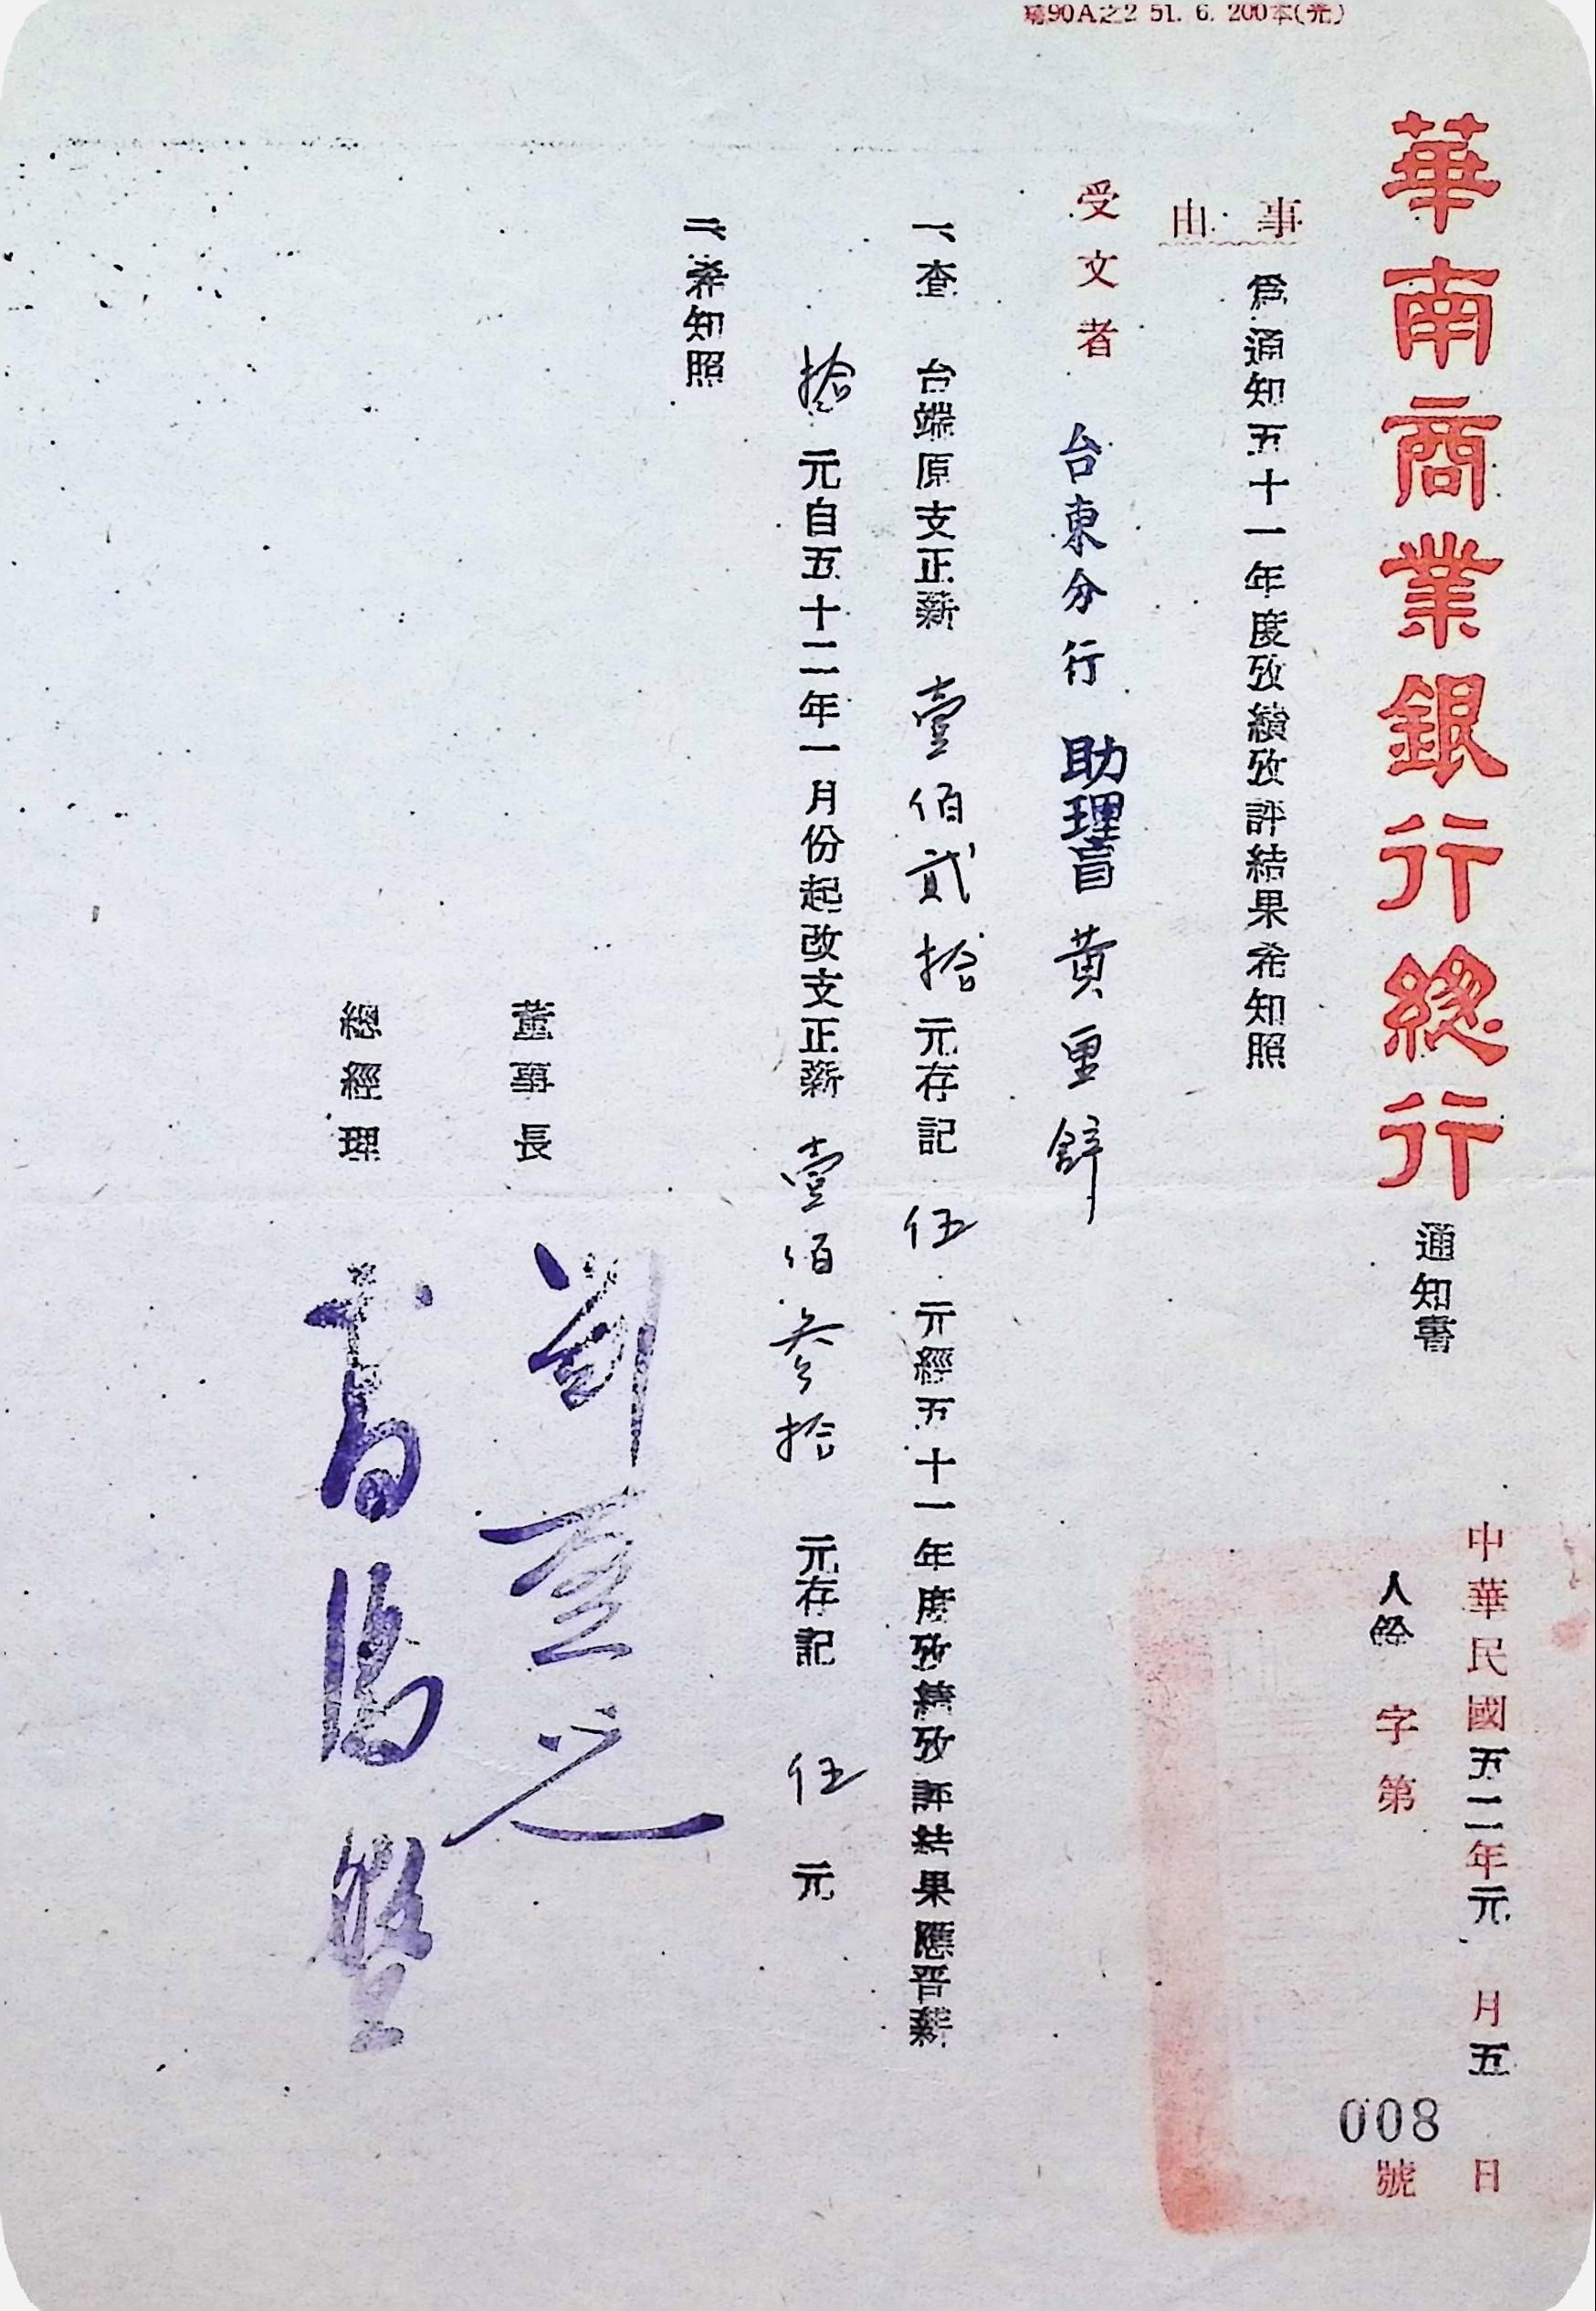 華南商業銀行總行通知書
中華民國五二年元月五日
人 字第008號
事由
為通知五十一年度攷績攷評結果希知照
受文者 台東分行 助理員 黃里
一、查 台端原支正薪壹佰貳拾元存記伍元經五十一年度攷績攷評結果應晉薪
拾元自五十二年一月份起改支正薪壹佰叁拾元存記伍元
二、希知照
董事長 劉啓光
總經理 高湯盤
90A之2 51. 6. 200本(光)